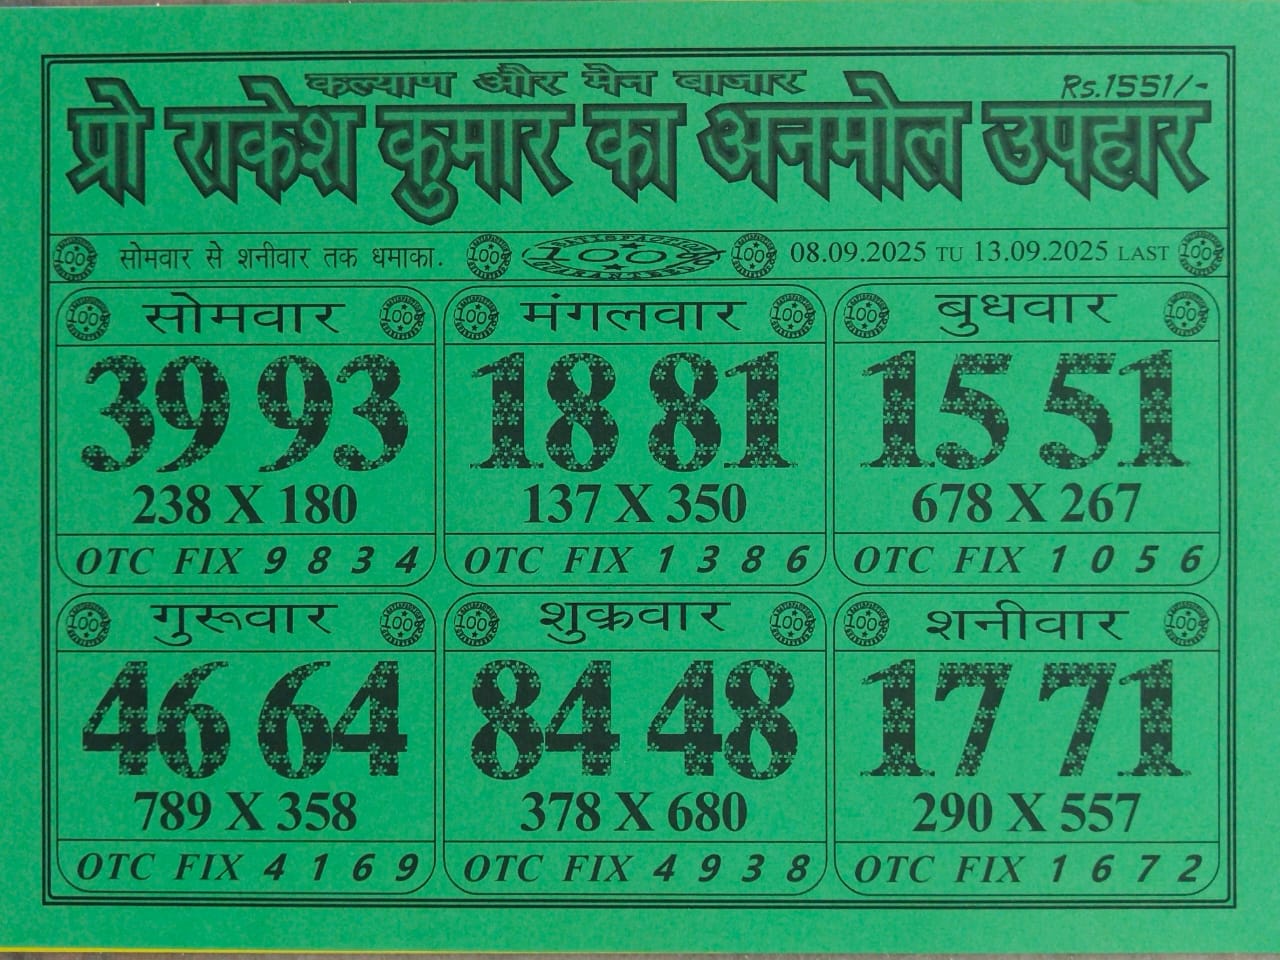 कल्याण और मेन बाजार
Rs.1551/-
प्रो राकेश कुमार का अनमोल उपहार
100 सोमवार से शनीवार तक धमाका. 100 100 100 08.09.2025 TU 13.09.2025 LAST 100
100 सोमवार 100
39 93
238 X 180
OTC FIX 9 8 3 4
100 मंगलवार 100
18 81
137 X 350
OTC FIX 1 3 8 6
100 बुधवार 100
15 51
678 X 267
OTC FIX 1 0 5 6
100 गुरूवार 100
46 64
789 X 358
OTC FIX 4 1 6 9
100 शुक्रवार 100
84 48
378 X 680
OTC FIX 4 9 3 8
100 शनीवार 100
17 71
290 X 557
OTC FIX 1 6 7 2